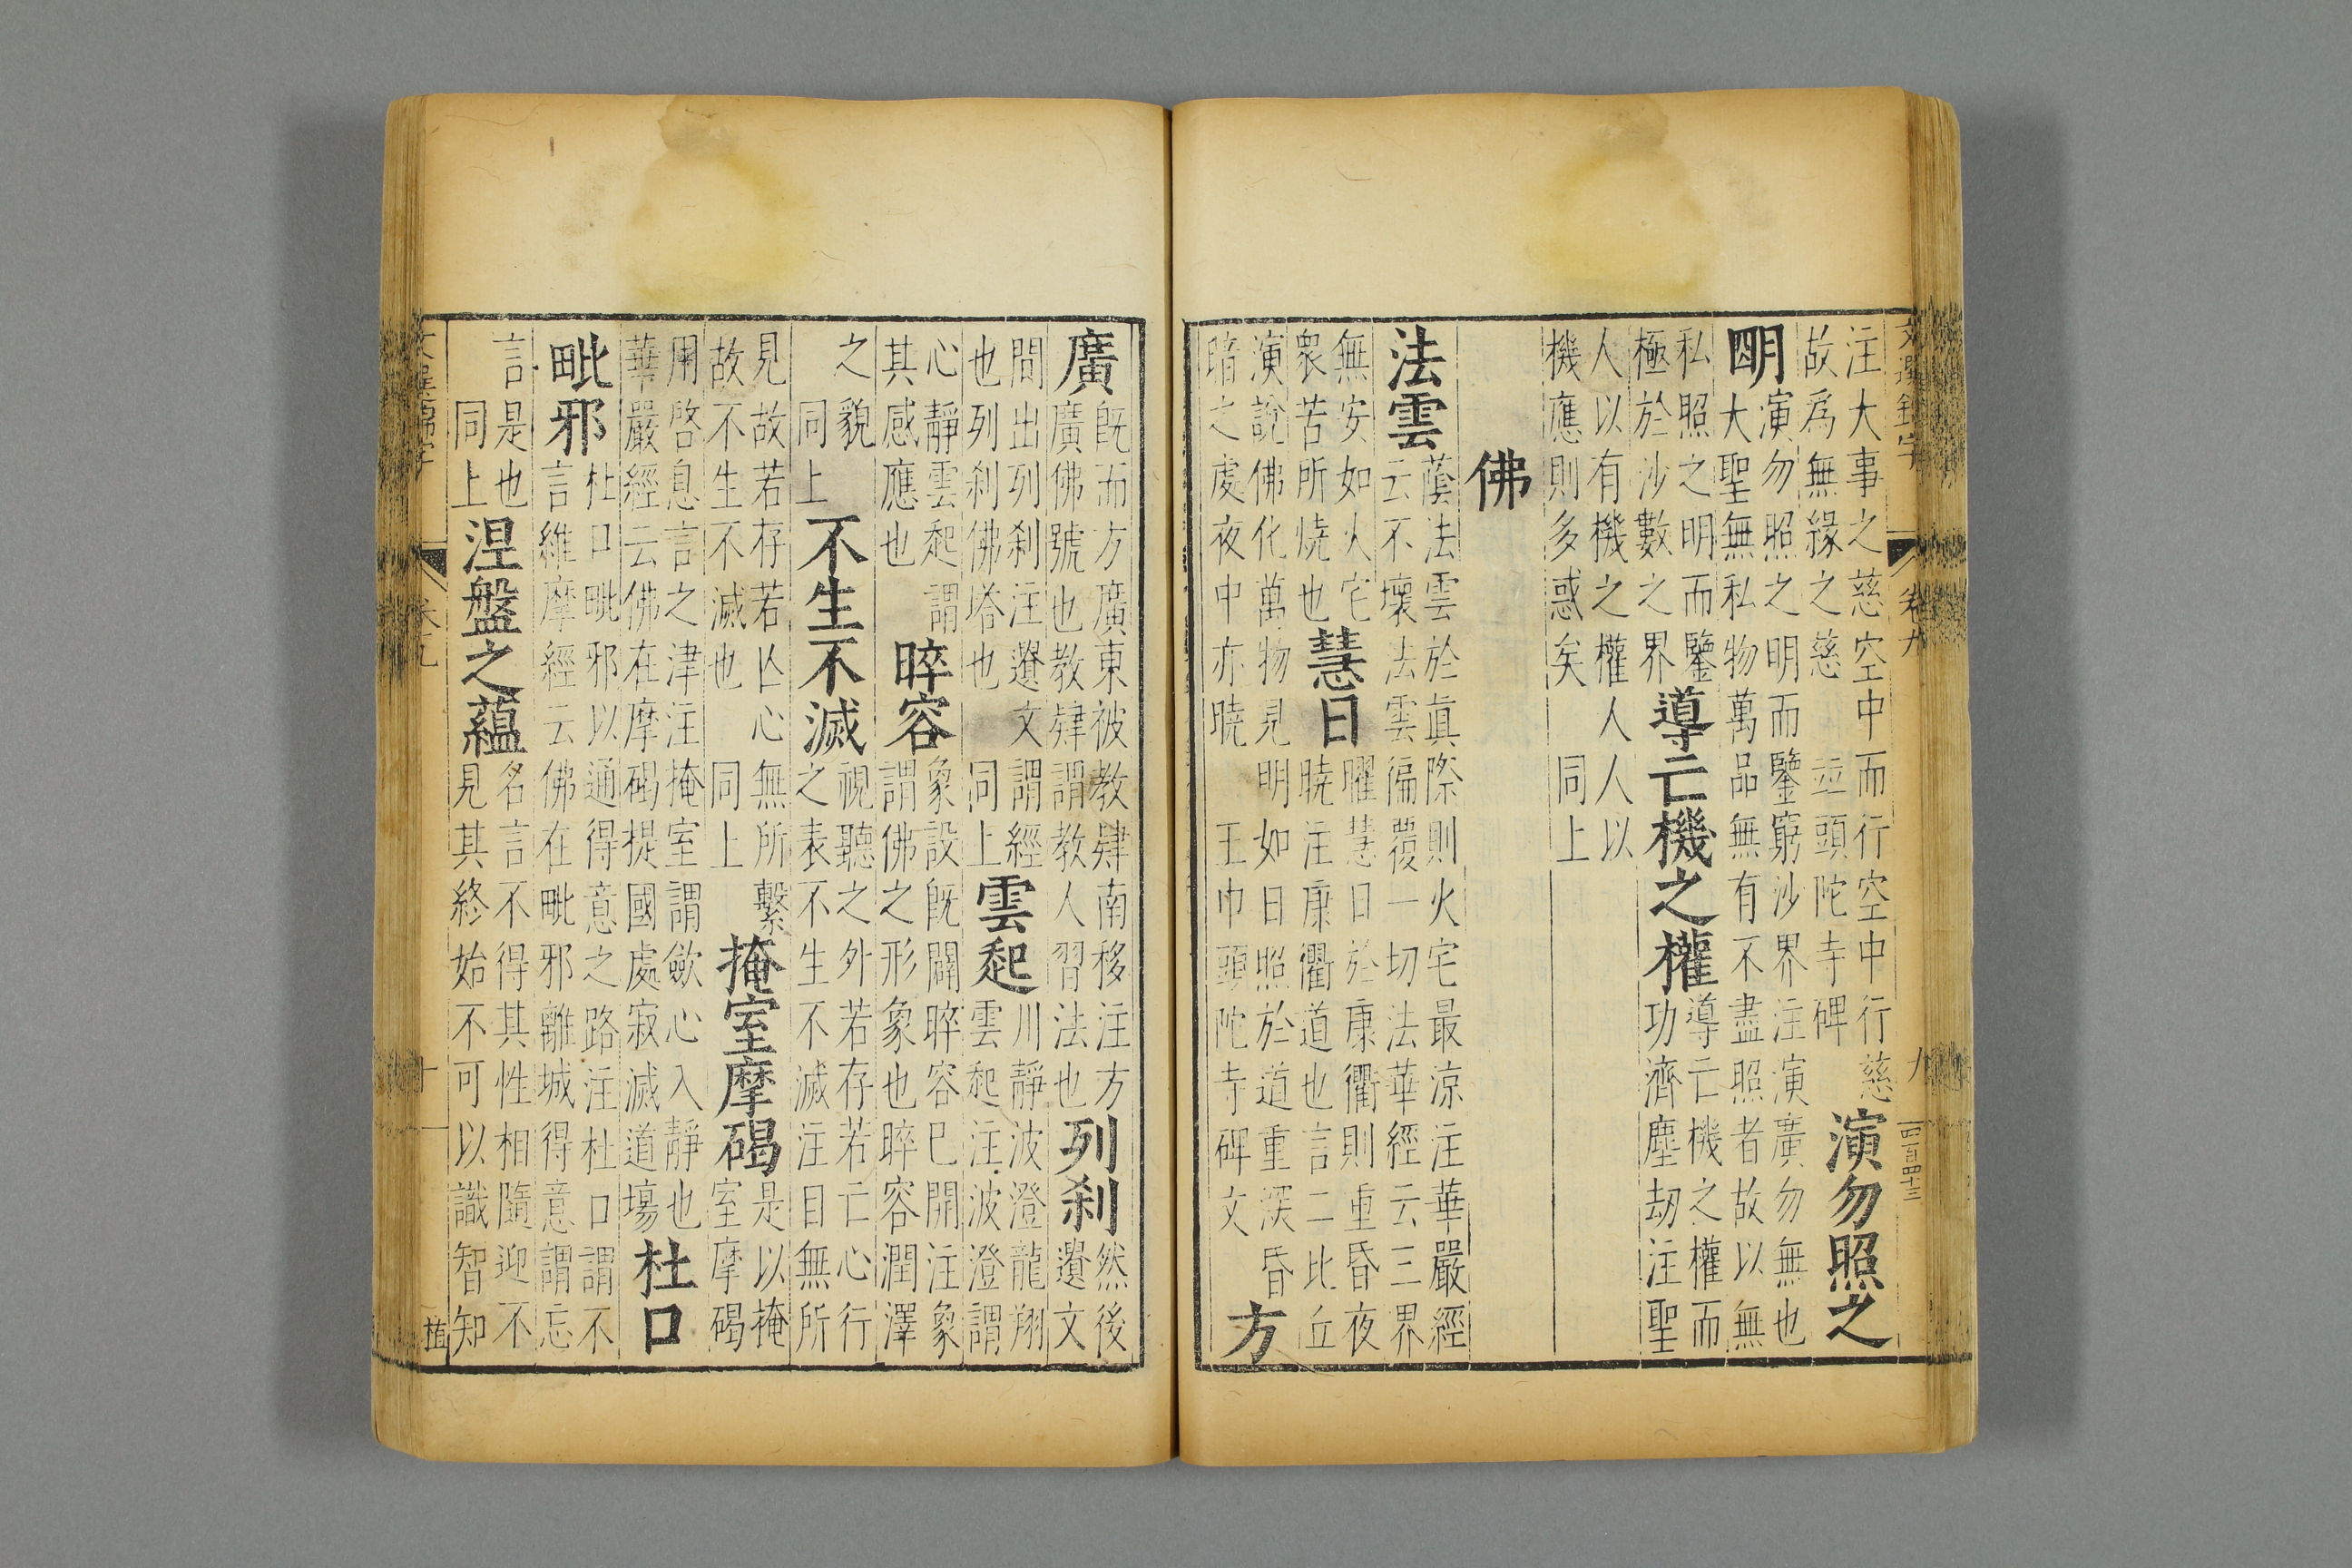 文選錦字 卷九 九 四百四十三
注大事之慈空中而行空中行慈
故為無緣之慈 並頭陀寺碑
演勿照之
明
演勿照之明而鑒窮沙界注演廣勿無也
大聖無私物萬品無有不盡照者故以無
私照之明而鑒
極於沙數之界
導亡機之權
導亡機之權而
功濟塵劫注聖
人以有機之權人人以
機應則多惑矣 同上
佛
法雲
蔭法雲於眞際則火宅最涼注華嚴經
云不壞法雲徧覆一切法華經云三界
無安如火宅
衆苦所燒也
慧日
曜慧日於康衢則重昏夜
曉注康衢道也言二比丘
演說佛化萬物見明如日照於道重深昏
暗之處夜中亦曉 王巾頭陀寺碑文
方
廣
既而方廣東被教肄南移注方
廣佛號也教肄謂教人習法也
列刹
然後
遺文
間出列刹注遺文謂經
也列刹佛塔也 同上
雲起
川靜波澄龍翔
雲起注波澄謂
心靜雲起謂
其感應也
睟容
象設既闢睟容已開注象
謂佛之形象也睟容潤澤
之貌
同上
不生不滅
視聽之外若存若亡心行
之表不生不滅注曰無所
見故若存若亡心無所繫
故不生不滅也 同上
掩室摩碣
是以掩
室摩碣
用啓息言之津注掩室謂歛心入靜也
華嚴經云佛在摩碣提國處寂滅道場
杜口
毗邪
杜口毗邪以通得意之路注杜口謂不
言維摩經云佛在毗邪離城得意謂忘
言是也
同上
涅盤之蘊
名言不得其性相隨迎不
見其終始不可以識智知
文選錦字 卷九 十 植